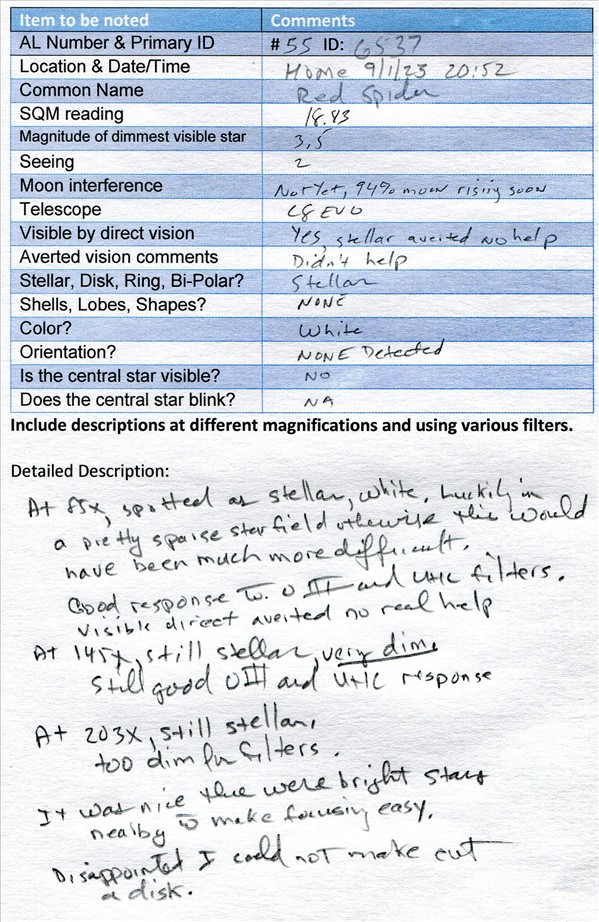 Item to be noted Comments
AL Number & Primary ID #55 ID: 6537
Location & Date/Time Home 9/1/23 20:52
Common Name Red Spider
SQM reading 18.43
Magnitude of dimmest visible star 3.5
Seeing 2
Moon interference Not Yet, 94% moon rising soon
Telescope C8 EVO
Visible by direct vision Yes, stellar averted no help
Averted vision comments Didn't help
Stellar, Disk, Ring, Bi-Polar? Stellar
Shells, Lobes, Shapes? NONE
Color? White
Orientation? NONE Detected
Is the central star visible? NO
Does the central star blink? NA
Include descriptions at different magnifications and using various filters.
Detailed Description:
At 85x, spotted as stellar, white. Luckily in
a pretty sparse star field otherwise this would
have been much more difficult.
Good response to OIII and UHC filters.
Visible direct averted no real help
At 145x, still stellar, very dim,
still good OIII and UHC response
At 203x, still stellar,
too dim for filters.
It was nice there were bright stars
nearby to make focusing easy.
Disappointed I could not make out
a disk.